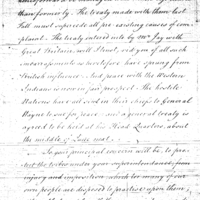 than former by . The treaty made with them last
Fall must supercede all pre-existing causes of com-
plaint. The treaty entered into by Mr. Jay with
Great Britain, will blunt, end you of all such
embarrassments as heretofore have sprung from
British influence: And peace with the Western
Indians is now in fair prospect. The hostile
Nations have all sent in their chiefs to General
Wayne to sue for peace: and a general treaty is
agreed to be held at his Head Quarters, about
the middle of June next.
Your principal concern will be, to pro-
tect the tribes under your superintendance from
injury and imposition, which too many of our
own people are disposed to practise upon them;